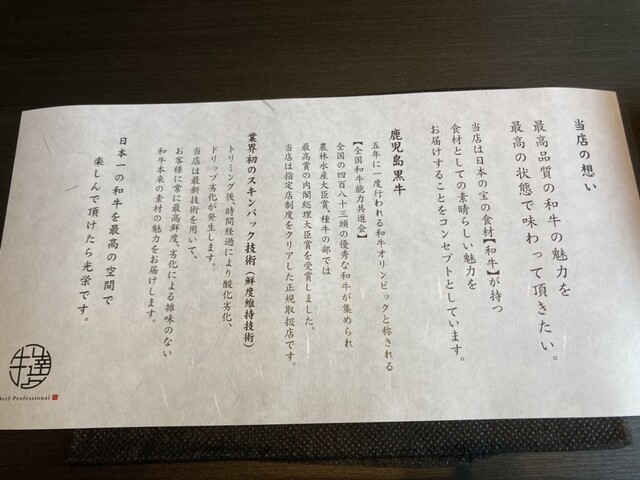 当店の想い
最高品質の和牛の魅力を
最高の状態で味わって頂きたい。
当店は日本の宝の食材【和牛】が持つ
食材としての素晴らしい魅力を
お届けすることをコンセプトとしています。
鹿児島黒牛
五年に一度行われる和牛オリンピックと称される
【全国和牛能力共進会】
全国の四百八十三頭の優秀な和牛が集められ
農林水産大臣賞、種牛の部では
最高賞の内閣総理大臣賞を受賞しました。
当店は指定店制度をクリアした正規取扱店です。
業界初のスキンパック技術（鮮度維持技術）
トリミング後、時間経過により酸化劣化、
ドリップ劣化が発生します。
当店は最新技術を用いて、
お客様に常に最高鮮度、劣化による雑味のない
和牛本来の素材の魅力をお届けします。
日本一の和牛を最高の空間で
楽しんで頂けたら光栄です。
牛達
Beef Professional